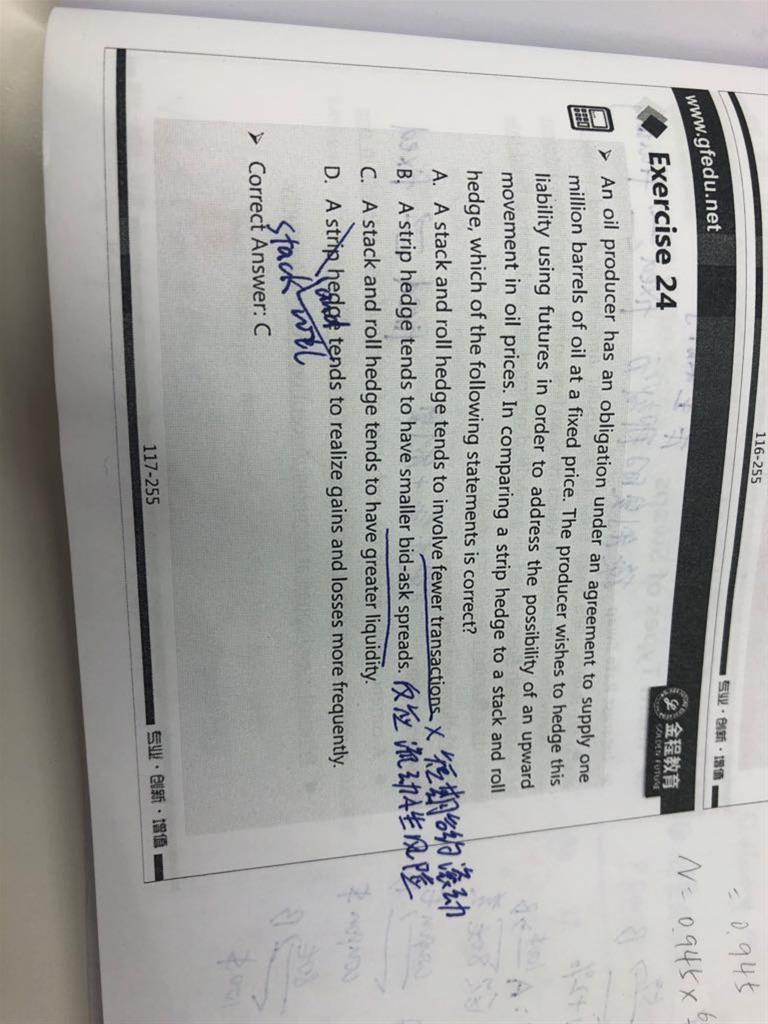 116-255
专业·创新·增值
www.gfedu.net
金程教育
GOLDEN FUTURE
Exercise 24
An oil producer has an obligation under an agreement to supply one
million barrels of oil at a fixed price. The producer wishes to hedge this
liability using futures in order to address the possibility of an upward
movement in oil prices. In comparing a strip hedge to a stack and roll
hedge, which of the following statements is correct?
A. A stack and roll hedge tends to involve fewer transactions. × 短期合约滚动
B. A strip hedge tends to have smaller bid-ask spreads. 反应流动性风险
C. A stack and roll hedge tends to have greater liquidity.
D. A strip hedge tends to realize gains and losses more frequently.
stack and roll
Correct Answer: C
117-255
专业·创新·增值
= 0.945
N = 0.945 ×